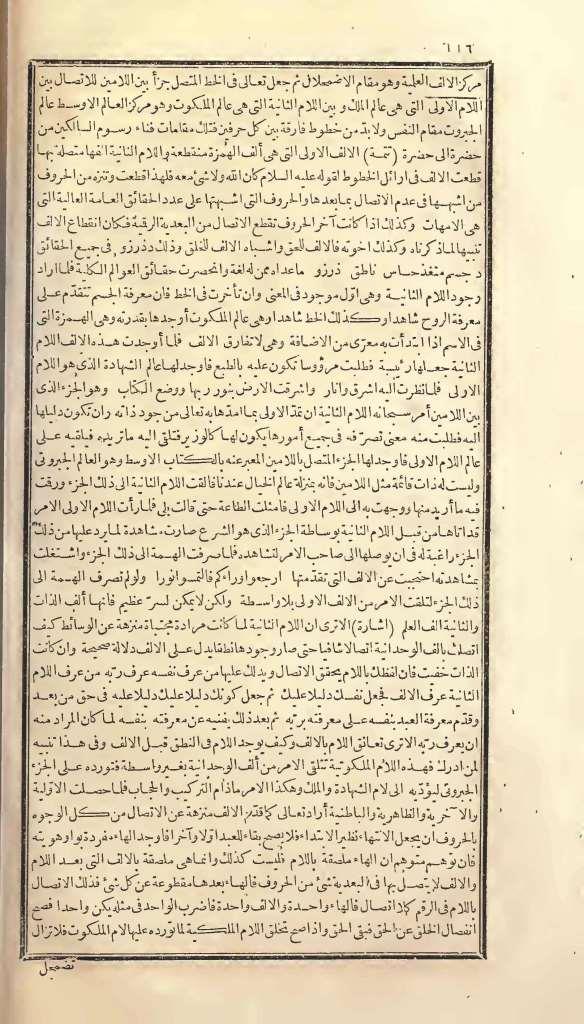 ١١٦
مركز الالف العلمية وهو مقام الاضمحلال ثم جعل تعالى فى الخط المتصل جزأ بين اللامين للاتصال بين
اللام الاولى التى هى عالم الملك وبين اللام الثانية التى هى عالم الملكوت وهو مركز العالم الاوسط عالم
الجبروت مقام النفس ولابد من خطوط فارقة بين كل حرفين فتلك مقامات فناء رسوم السالكين من
حضرة الى حضرة (تتمة) الالف الاولى التى هى ألف الهمزة منقطعة واللام الثانية الفها متصلة بها
قطعت الالف فى اوائل الخطوط لقوله عليه السلام كان الله ولا شئ معه فلهذا قطعت وتنزه من الحروف
من اشبهها فى عدم الاتصال بما بعدها والحروف التى اشبهتها على عدد الحقائق العامة العالية التى
هى الامهات وكذلك اذا كانت آخر الحروف تقطع الاتصال من البعدية الرقمية فكان انقطاع الالف
تنبيها لما ذكرناه وكذلك اخوته فالالف للحق واشباه الالف للخلق وذلك د ذ ر ز و فى جميع الحقائق
د جسم متغذ حساس ناطق ذ ر ز و ما عداه ممن له لغة وانحصرت حقائق العوالم الكلية فلما اراد
وجود اللام الثانية وهى اول موجود فى المعنى وان تأخرت فى الخط فان معرفة الجسم تتقدم على
معرفة الروح شاهدا وكذلك الخط شاهدا وهى عالم الملكوت أوجدها بقدرته وهى الهمزة التى
فى الاسم اذا ابتدأت به معرى من الاضافة وهى لا تفارق الالف فلما أوجدت هذه الالف اللام
الثانية جعلها رئيسة فطلبت مرؤسا تكون عليه بالطبع فاوجد لها عالم الشهادة الذى هو اللام
الاولى فلما نظرت اليه اشرق وانار واشرقت الارض بنور ربها ووضع الكتاب وهو الجزء الذى
بين اللامين أمر سبحانه اللام الثانية ان تمد الاولى بما امدها به تعالى من جود ذاته وان تكون دليلها
اليه فطلبت منه معنى تصرفه فى جميع أمورها يكون لها كالوزير فتلقى اليه ما تريده فيلقيه على
عالم اللام الاولى فاوجد لها الجزء المتصل باللامين المعبر عنه بالكتاب الاوسط وهو العالم الجبروتى
وليست له ذات قائمة مثل اللامين فانه بمنزلة عالم الخيال عندنا فالقت اللام الثانية الى ذلك الجزء ورقت
فيه ما أريد منها ووجهت به الى اللام الاولى فامتثلت الطاعة حتى قالت بلى فلما رأت اللام الاولى الامر
قد اتاها من قبل اللام الثانية بوساطة الجزء الذى هو الشرع صارت مشاهدة لما يرد عليها من ذلك
الجزء راغبة له فى ان يوصلها الى صاحب الامر لتشاهده فلما صرفت الهمة الى ذلك الجزء واشتغلت
بمشاهدته احتجبت عن الالف التى تقدمتها ارجعوا وراءكم فالتمسوا نورا ولو لم تصرف الهمة الى
ذلك الجزء لتلقت الامر من الالف الاولى بلا واسطة ولكن لا يمكن لسر عظيم فانها ألف الذات
والثانية الف العلم (اشارة) الا ترى ان اللام الثانية لما كانت مرادة مجتباة منزهة عن الوسائط كيف
اتصلت بالف الوحدانية اتصالا شافيا حتى صار وجودها نطقا يدل على الالف دلالة صحيحة وان كانت
الذات خفيت فان لفظك باللام يحقق الاتصال ويدلك عليها من عرف نفسه عرف ربه من عرف اللام
الثانية عرف الالف فجعل نفسك دليلا عليك ثم جعل كونك دليلا عليك دليلا عليه فى حق من بعد
وقدم معرفة العبد بنفسه على معرفته بربه ثم بعد ذلك يفنيه عن معرفته بنفسه لما كان المراد منه
ان يعرف ربه الا ترى تعانق اللام بالالف وكيف يوجد اللام فى النطق قبل الالف وفى هذا تنبيه
لمن ادرك فهذه اللام الملكوتية تتلقى الامر من ألف الوحدانية بغير واسطة فتورده على الجزء
الجبروتى ليؤديه الى لام الشهادة والملك وهكذا الامر ما دام التركيب والحجاب فلما حصلت الاولية
والآخرية والظاهرية والباطنية أراد تعالى كما قدم الالف منزهة عن الاتصال من كل الوجوه
بالحروف ان يجعل الانتهاء نظير الابتداء فلا يصح بقاء للعبد اولا وآخرا فاوجد الهاء مفردة بواو هويته
فان توهم متوهم ان الهاء ملصقة باللام فليست كذلك وانما هى ملصقة بالالف التى بعد اللام
والالف لا يتصل بها فى البعدية شئ من الحروف فالهاء بعدها مقطوعة عن كل شئ فذلك الاتصال
باللام فى الرقم كلا اتصال فالهاء واحدة والالف واحدة فاضرب الواحد فى مثله يكن واحدا فصح
انفصال الخلق عن الحق فبقى الحق واذا صح تخلق اللام الملكية لما تورده عليها لام الملكوت فلا تزال
تضمحل